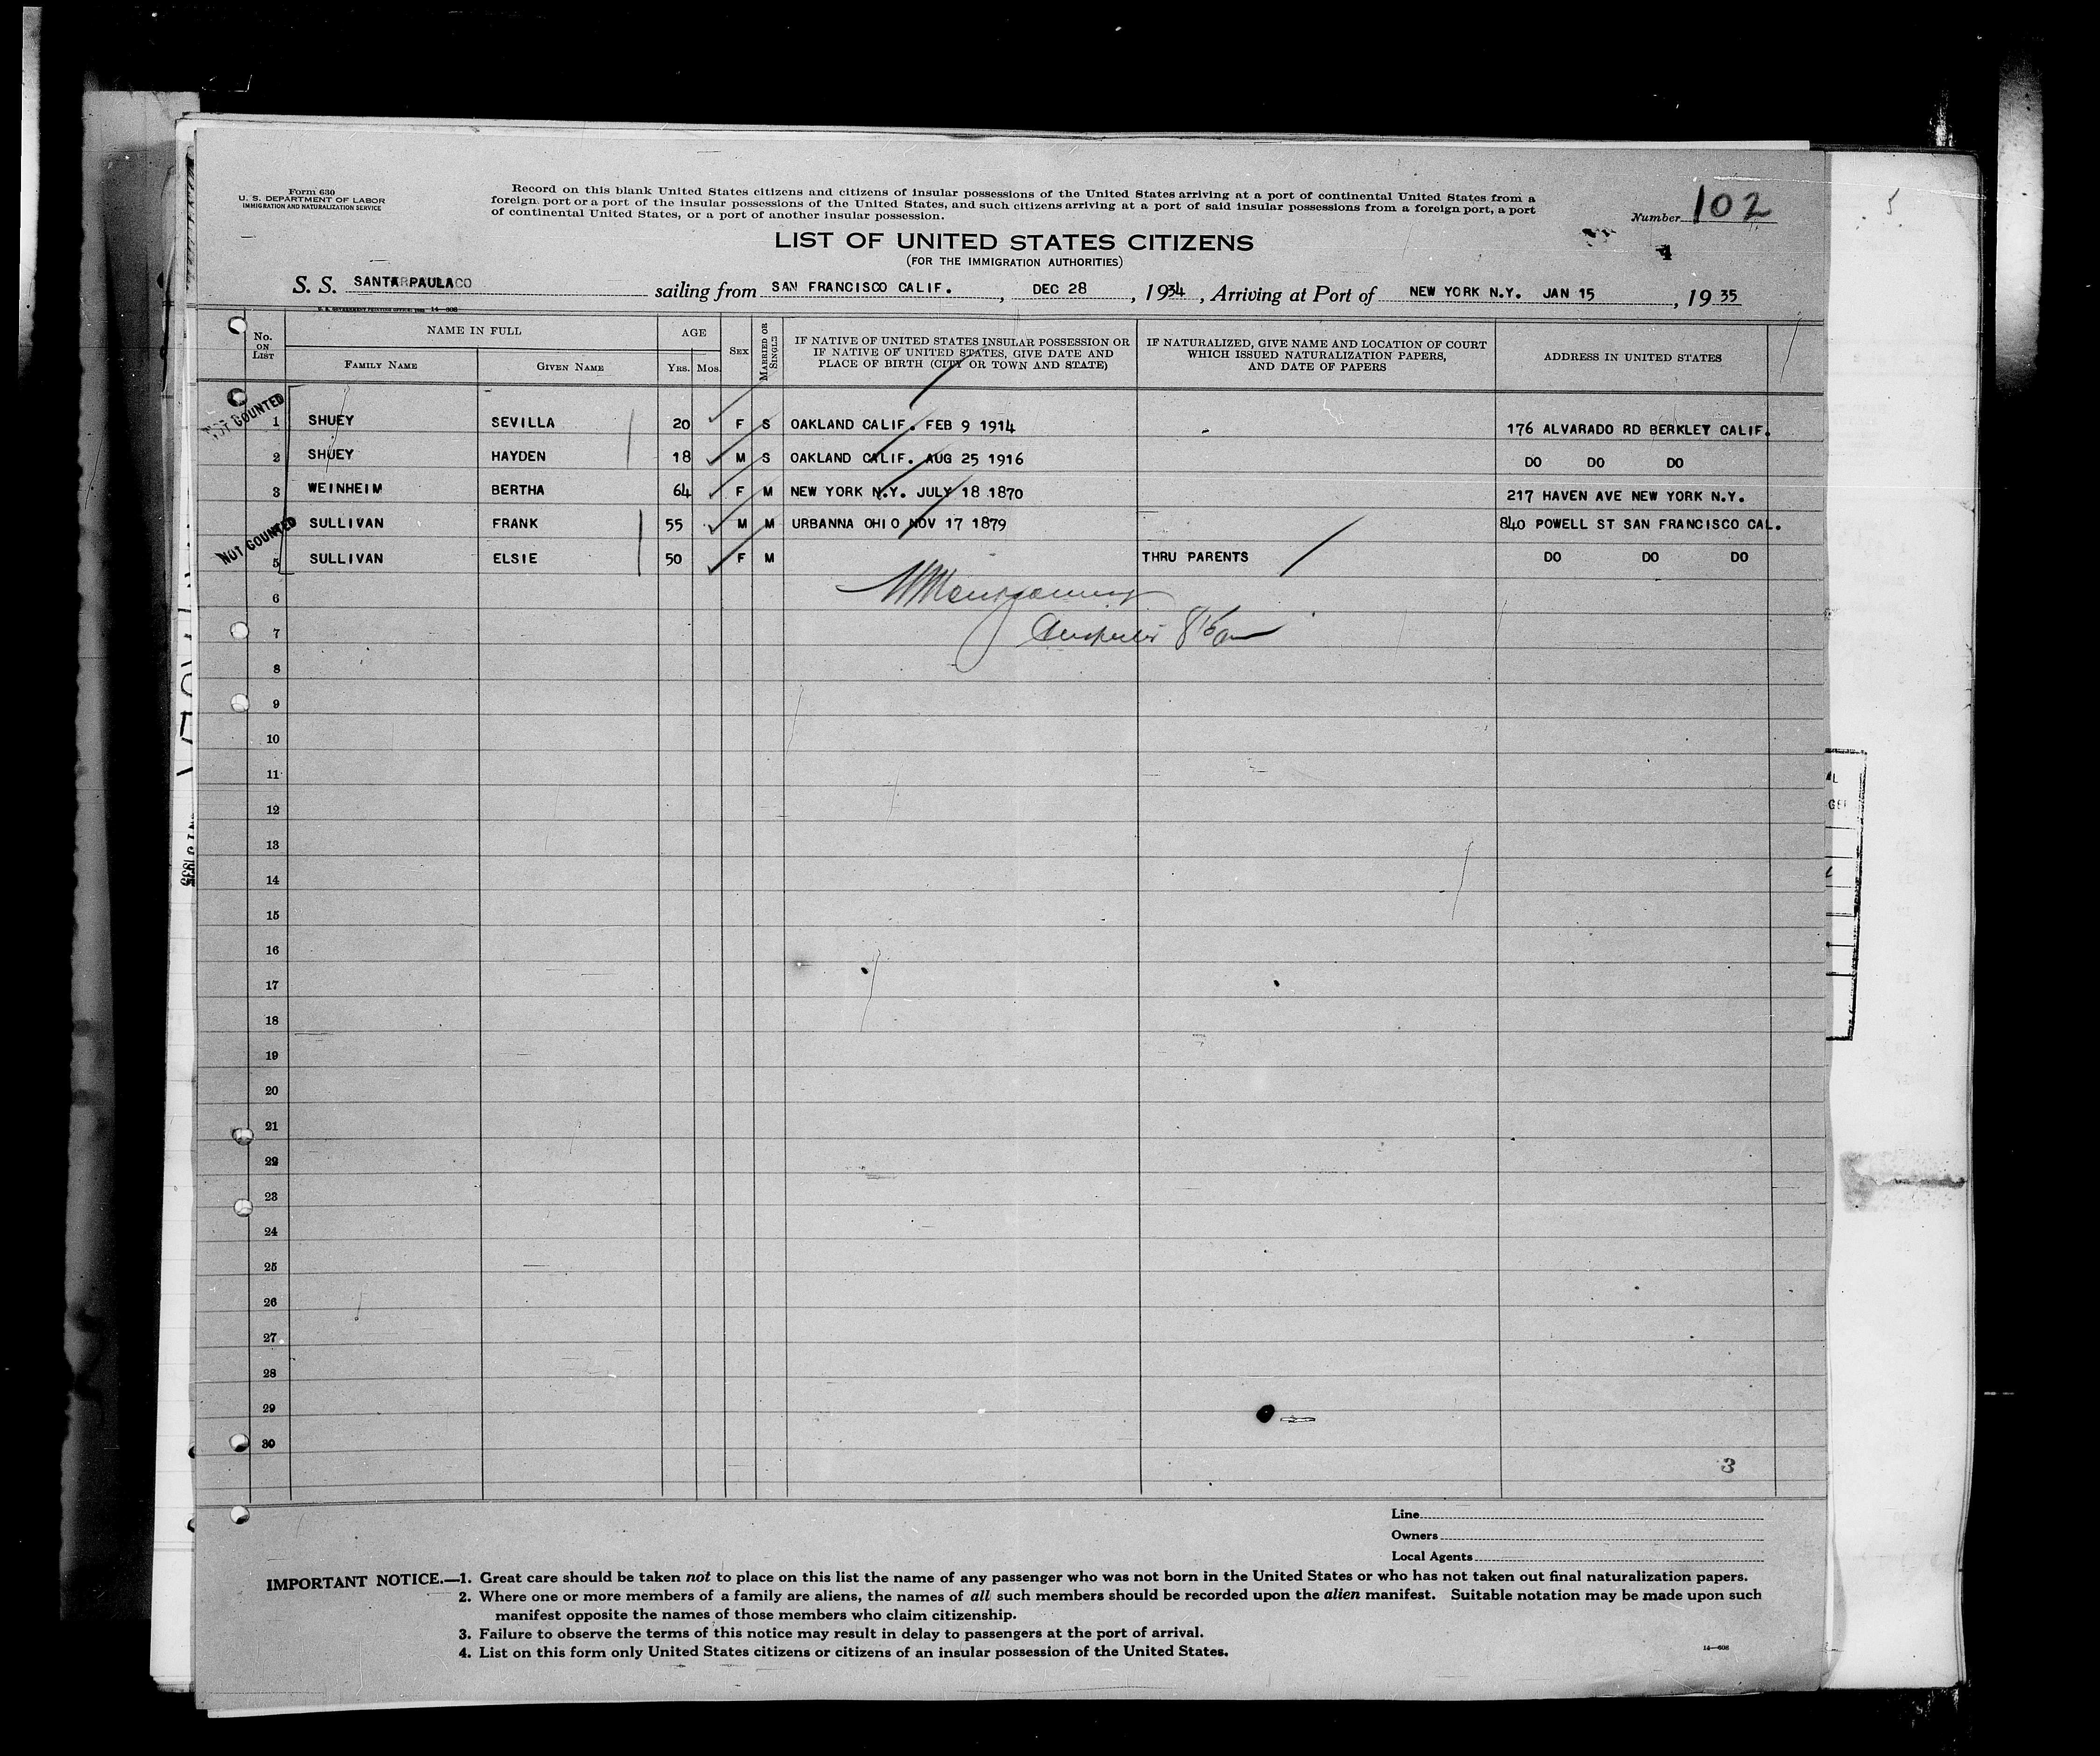 Form 630
U. S. DEPARTMENT OF LABOR
IMMIGRATION AND NATURALIZATION SERVICE
Record on this blank United States citizens and citizens of insular possessions of the United States arriving at a port of continental United States from a
foreign port or a port of the insular possessions of the United States, and such citizens arriving at a port of said insular possessions from a foreign port, a port
of continental United States, or a port of another insular possession.
Number 102
4
LIST OF UNITED STATES CITIZENS
(FOR THE IMMIGRATION AUTHORITIES)
S. S. SANTA PAULA sailing from SAN FRANCISCO CALIF. , DEC 28 , 1934 , Arriving at Port of NEW YORK N.Y. JAN 15 , 19 35
No. ON LIST
NAME IN FULL
FAMILY NAME
GIVEN NAME
AGE
YRS. MOS.
SEX
MARRIED OR SINGLE
IF NATIVE OF UNITED STATES INSULAR POSSESSION OR
IF NATIVE OF UNITED STATES, GIVE DATE AND
PLACE OF BIRTH (CITY OR TOWN AND STATE)
IF NATURALIZED, GIVE NAME AND LOCATION OF COURT
WHICH ISSUED NATURALIZATION PAPERS,
AND DATE OF PAPERS
ADDRESS IN UNITED STATES
NOT COUNTED
1 SHUEY SEVILLA 20 F S OAKLAND CALIF. FEB 9 1914 176 ALVARADO RD BERKLEY CALIF.
2 SHUEY HAYDEN 18 M S OAKLAND CALIF. AUG 25 1916 DO DO DO
3 WEINHEIM BERTHA 64 F M NEW YORK N.Y. JULY 18 1870 217 HAVEN AVE NEW YORK N.Y.
NOT COUNTED
SULLIVAN FRANK 55 M M URBANNA OHIO NOV 17 1879 840 POWELL ST SAN FRANCISCO CAL.
5 SULLIVAN ELSIE 50 F M THRU PARENTS DO DO DO
6
7
8
9
10
11
12
13
14
15
16
17
18
19
20
21
22
23
24
25
26
27
28
29
30
3
Line
Owners
Local Agents
IMPORTANT NOTICE.—1. Great care should be taken not to place on this list the name of any passenger who was not born in the United States or who has not taken out final naturalization papers.
2. Where one or more members of a family are aliens, the names of all such members should be recorded upon the alien manifest. Suitable notation may be made upon such
manifest opposite the names of those members who claim citizenship.
3. Failure to observe the terms of this notice may result in delay to passengers at the port of arrival.
4. List on this form only United States citizens or citizens of an insular possession of the United States.
14—608